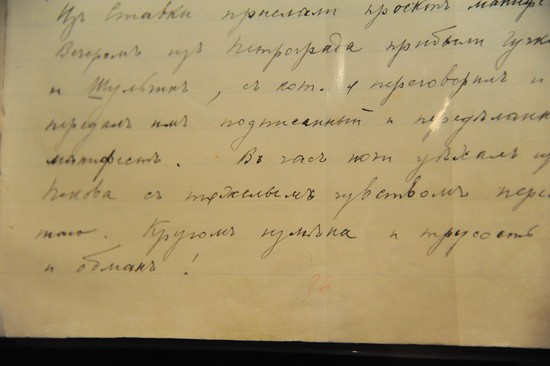 Изъ Ставки прислали проектъ манифе
Вечеромъ изъ Петрограда прибыли Гучк
и Шульгинъ, съ кот. я переговорилъ и
передалъ имъ подписанный и передѣлан
манифестъ. Въ часъ ночи уѣхалъ из
Пскова съ тяжелымъ чувствомъ пере
таго. Кругомъ измѣна и трусость
и обманъ!
86